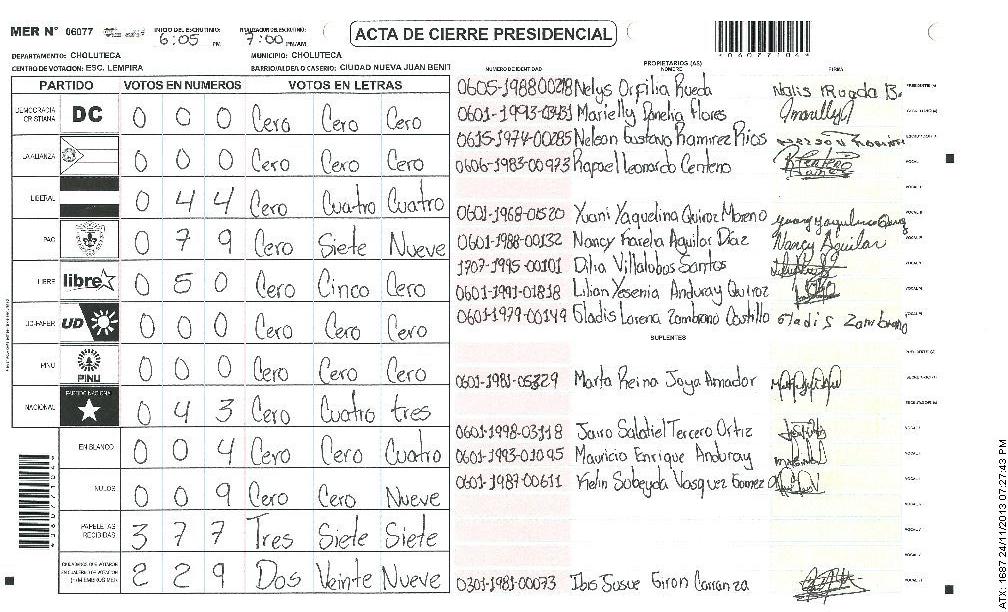 MER N° 06077
INICIO DEL ESCRUTINIO: 6:05 PM
FINALIZACION DEL ESCRUTINIO: 7:00 PM/AM
ACTA DE CIERRE PRESIDENCIAL
DEPARTAMENTO: CHOLUTECA
MUNICIPIO: CHOLUTECA
CENTRO DE VOTACION: ESC. LEMPIRA
BARRIO/ALDEA O CASERIO: CIUDAD NUEVA JUAN BENIT
PARTIDO VOTOS EN NUMEROS VOTOS EN LETRAS
DEMOCRACIA CRISTIANA DC 0 0 0 Cero Cero Cero
LA ALIANZA 0 0 0 Cero Cero Cero
LIBERAL 0 4 4 Cero Cuatro Cuatro
PAC 0 7 9 Cero Siete Nueve
LIBRE libre 0 5 0 Cero Cinco Cero
UD-FAPER UD 0 0 0 Cero Cero Cero
PINU PINU 0 0 0 Cero Cero Cero
NACIONAL PARTIDO NACIONAL 0 4 3 Cero Cuatro tres
EN BLANCO 0 0 4 Cero Cero Cuatro
NULOS 0 0 9 Cero Cero Nueve
PAPELETAS RECIBIDAS 3 7 7 Tres Siete Siete
2 2 9 Dos Veinte Nueve
PROPIETARIOS (AS)
NUMERO DE IDENTIDAD NOMBRE FIRMA
0605-1988-00218 Nelys Orfilia Rueda
0601-1993-03431 Marielly Fonelia Flores
0615-1974-00285 Nelson Gustavo Ramirez Rios
0606-1983-00973 Rapael Leonardo Centeno
0601-1968-01520 Yuani Yaquelina Quiroz Moreno
0601-1988-00132 Nancy Karela Aguilar Diaz Nancy Aguilar
1707-1995-00101 Dilia Villalobos Santos
0601-1991-01818 Lilian Yesenia Anduray Quiroz
0601-1979-00149 Gladis Lorena Zambrano Castillo Gladis Zambrano
SUPLENTES
0601-1981-05329 Marta Reina Joya Amador
0601-1998-03118 Jairo Salatiel Tercero Ortiz
0601-1993-01095 Mauricio Enrique Anduray
0601-1987-00611 Kelin Sobeyda Vasquez Gomez
0301-1981-00073 Ibis Josue Giron Carranza
ATX: 1687 24/11/2013 07:27:43 PM